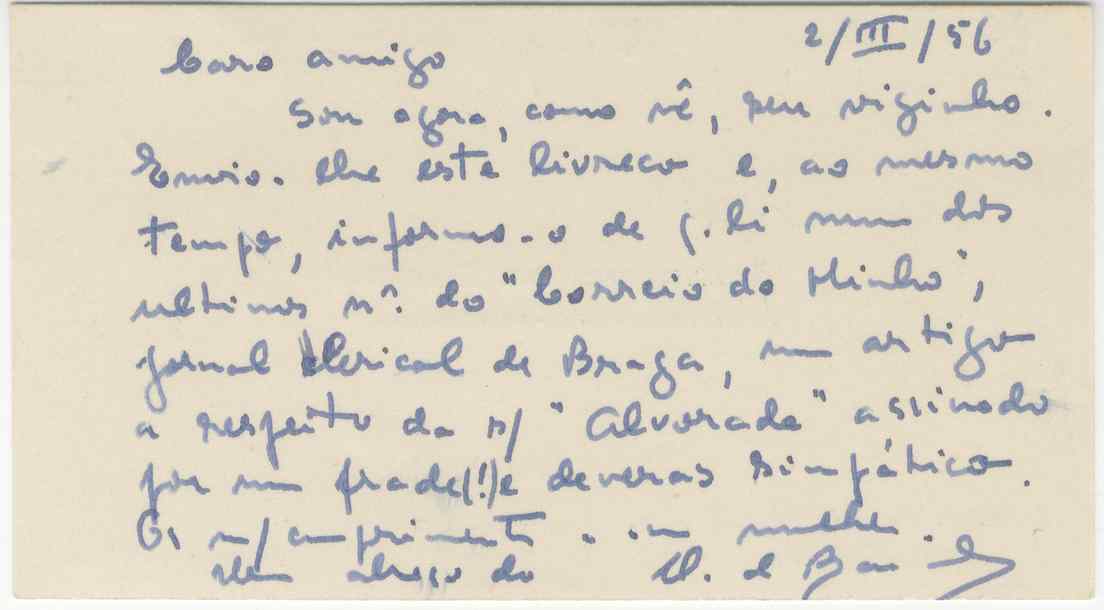 2/III/56
Caro amigo
Sou agora, como vê, seu viginho.
Envio-lhe este livreco e, ao mesmo
tempo, informo-o de q. li num dos
ultimos nº. do "Correio do Minho",
jornal clerical de Braga, um artigo
a respeito da n/ "Alvorada" assinado
por um frade(!) e deveras simpático.
Os m/ cumprimentos mulher.
Um abraço do